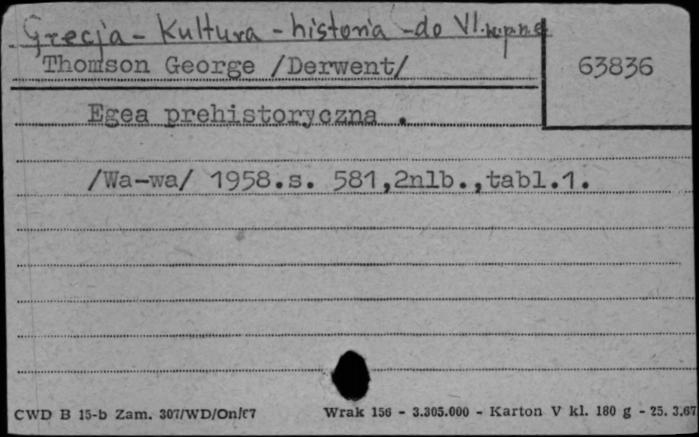 Grecja - Kultura - historia - do VI w.p.n.e
Thomson George /Derwent/
63836
Egea prehistoryczna .
/Wa-wa/ 1958.s. 581,2nlb.,tabl.1.
CWD B 15-b Zam. 307/WD/On/67 Wrak 156 - 3.305.000 - Karton V kl. 180 g - 25. 3.67